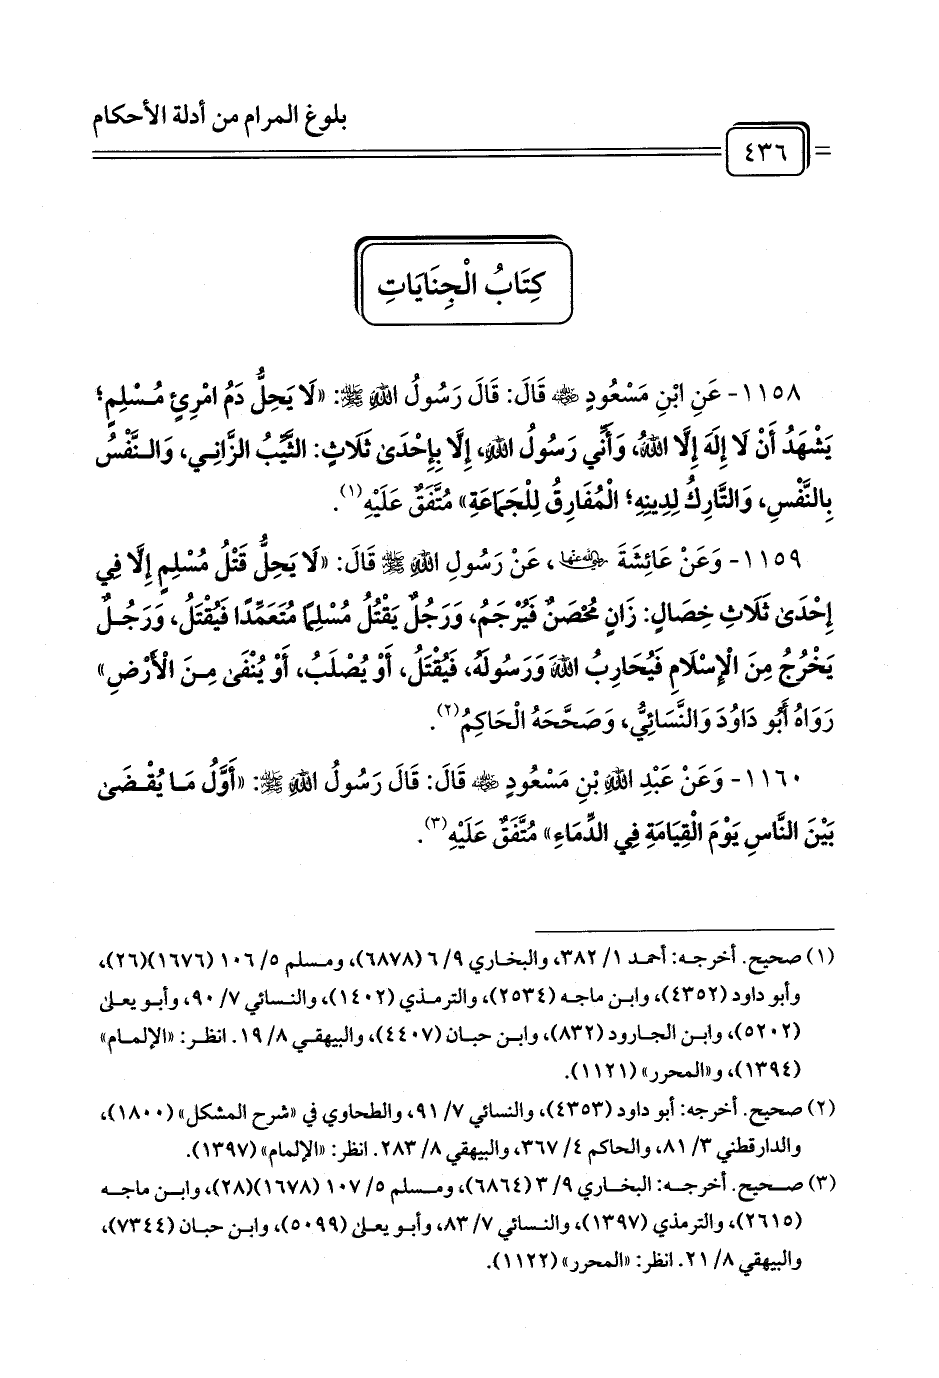 بلوغ المرام من أدلة الأحكام
٤٣٦
كِتَابُ الْجِنَايَاتِ
١١٥٨- عَنِ ابْنِ مَسْعُودٍ ﵁ قَالَ: قَالَ رَسُولُ اللَّهِ ﷺ: «لَا يَحِلُّ دَمُ امْرِئٍ مُسْلِمٍ؛
يَشْهَدُ أَنْ لَا إِلَهَ إِلَّا اللَّهُ، وَأَنِّي رَسُولُ اللَّهِ، إِلَّا بِإِحْدَى ثَلَاثٍ: الثَّيِّبُ الزَّانِي، وَالنَّفْسُ
بِالنَّفْسِ، وَالتَّارِكُ لِدِينِهِ؛ الْمُفَارِقُ لِلْجَمَاعَةِ» مُتَّفَقٌ عَلَيْهِ(١).
١١٥٩- وَعَنْ عَائِشَةَ ﵂، عَنْ رَسُولِ اللَّهِ ﷺ قَالَ: «لَا يَحِلُّ قَتْلُ مُسْلِمٍ إِلَّا فِي
إِحْدَى ثَلَاثِ خِصَالٍ: زَانٍ مُحْصَنٌ فَيُرْجَمُ، وَرَجُلٌ يَقْتُلُ مُسْلِمًا مُتَعَمِّدًا فَيُقْتَلُ، وَرَجُلٌ
يَخْرُجُ مِنَ الْإِسْلَامِ فَيُحَارِبُ اللَّهَ وَرَسُولَهُ، فَيُقْتَلُ، أَوْ يُصْلَبُ، أَوْ يُنْفَى مِنَ الْأَرْضِ»
رَوَاهُ أَبُو دَاوُدَ وَالنَّسَائِيُّ، وَصَحَّحَهُ الْحَاكِمُ(٢).
١١٦٠- وَعَنْ عَبْدِ اللَّهِ بْنِ مَسْعُودٍ ﵁ قَالَ: قَالَ رَسُولُ اللَّهِ ﷺ: «أَوَّلُ مَا يُقْضَى
بَيْنَ النَّاسِ يَوْمَ الْقِيَامَةِ فِي الدِّمَاءِ» مُتَّفَقٌ عَلَيْهِ(٣).
(١) صحيح. أخرجه: أحمد ١/ ٣٨٢، والبخاري ٩/ ٦ (٦٨٧٨)، ومسلم ٥/ ١٠٦ (١٦٧٦)(٢٦)،
وأبو داود (٤٣٥٢)، وابن ماجه (٢٥٣٤)، والترمذي (١٤٠٢)، والنسائي ٧/ ٩٠، وأبو يعلى
(٥٢٠٢)، وابن الجارود (٨٣٢)، وابن حبان (٤٤٠٧)، والبيهقي ٨/ ١٩. انظر: «الإلمام»
(١٣٩٤)، و«المحرر» (١١٢١).
(٢) صحيح. أخرجه: أبو داود (٤٣٥٣)، والنسائي ٧/ ٩١، والطحاوي في «شرح المشكل» (١٨٠٠)،
والدارقطني ٣/ ٨١، والحاكم ٤/ ٣٦٧، والبيهقي ٨/ ٢٨٣. انظر: «الإلمام» (١٣٩٧).
(٣) صحيح. أخرجه: البخاري ٩/ ٣ (٦٨٦٤)، ومسلم ٥/ ١٠٧ (١٦٧٨)(٢٨)، وابن ماجه
(٢٦١٥)، والترمذي (١٣٩٧)، والنسائي ٧/ ٨٣، وأبو يعلى (٥٠٩٩)، وابن حبان (٧٣٤٤)،
والبيهقي ٨/ ٢١. انظر: «المحرر» (١١٢٢).